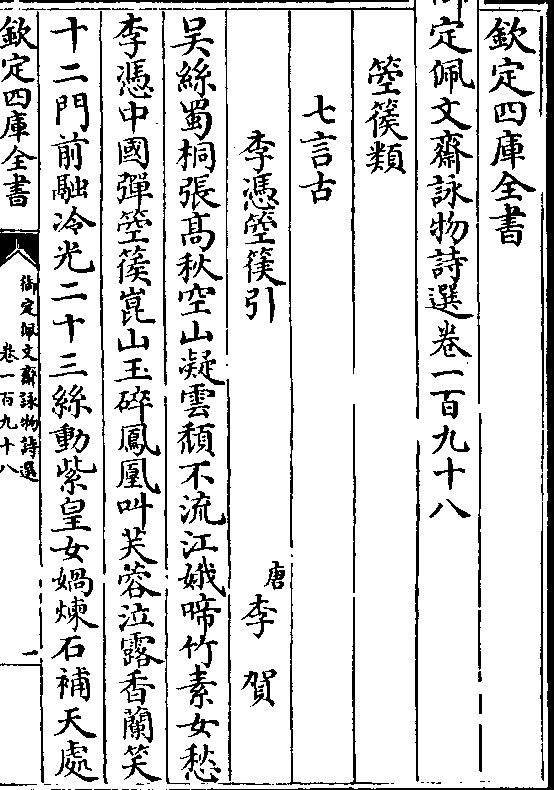 欽定四庫全書
御定佩文齋詠物詩選卷一百九十八
箜篌類
七言古
李憑箜篌引
唐李賀
吳絲蜀桐張髙秋空山凝雲頹不流江娥啼竹素女愁
李憑中國彈箜篌崑山玉碎鳳凰叫芙蓉泣露香蘭笑
十二門前融冷光二十三絲動紫皇女媧煉石補天處
欽定四庫全書
御定佩文齋詠物詩選
卷一百九十八
一